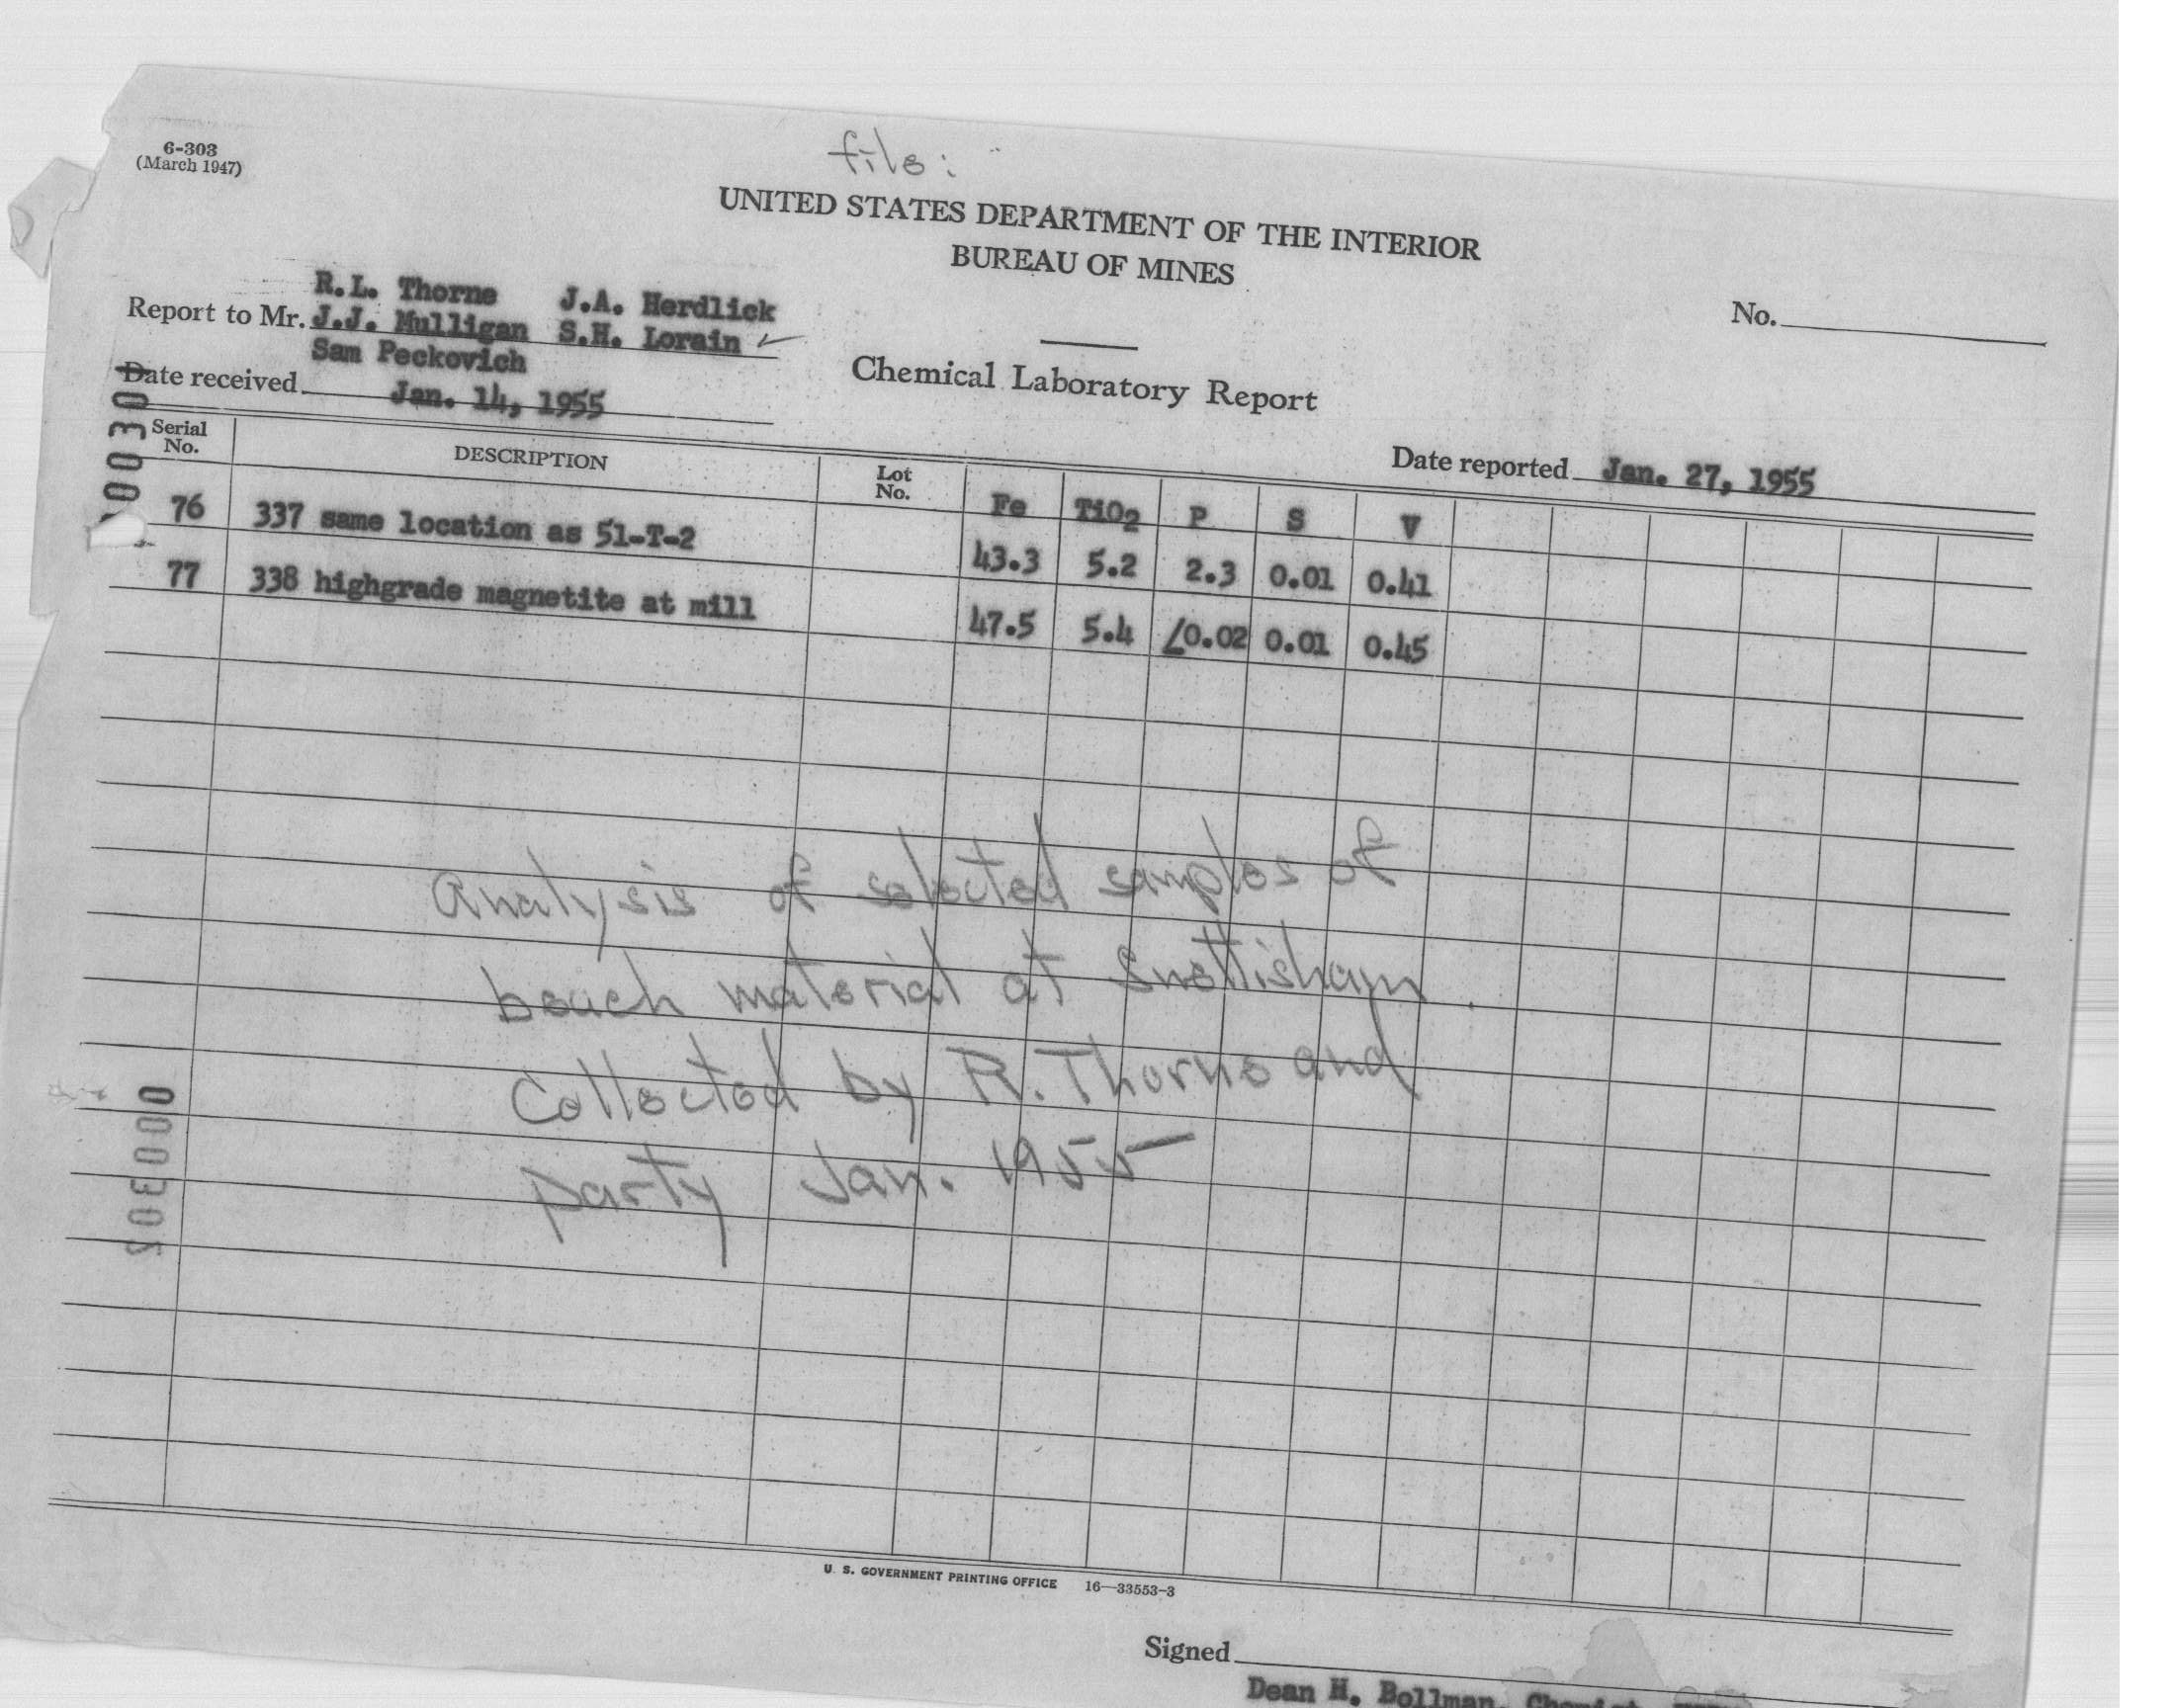 file:
6-303
(March 1947)
UNITED STATES DEPARTMENT OF THE INTERIOR
BUREAU OF MINES
R.L. Thorne J.A. Herdlick
Report to Mr. J.J. Mulligan S.H. Lorain ✓
Sam Peckovich
No.
Date received Jan. 14, 1955
Chemical Laboratory Report
Date reported Jan. 27, 1955
Serial No. DESCRIPTION Lot No. Fe TiO2 P S V
76 337 same location as 51-T-2 43.3 5.2 2.3 0.01 0.41
77 338 highgrade magnetite at mill 47.5 5.4 <0.02 0.01 0.45
Analysis of selected samples of
beach material at Snettisham.
Collected by R. Thorne and
party Jan. 1955
U. S. GOVERNMENT PRINTING OFFICE 16—33553-3
Signed
Dean H. Bollman, Chemist